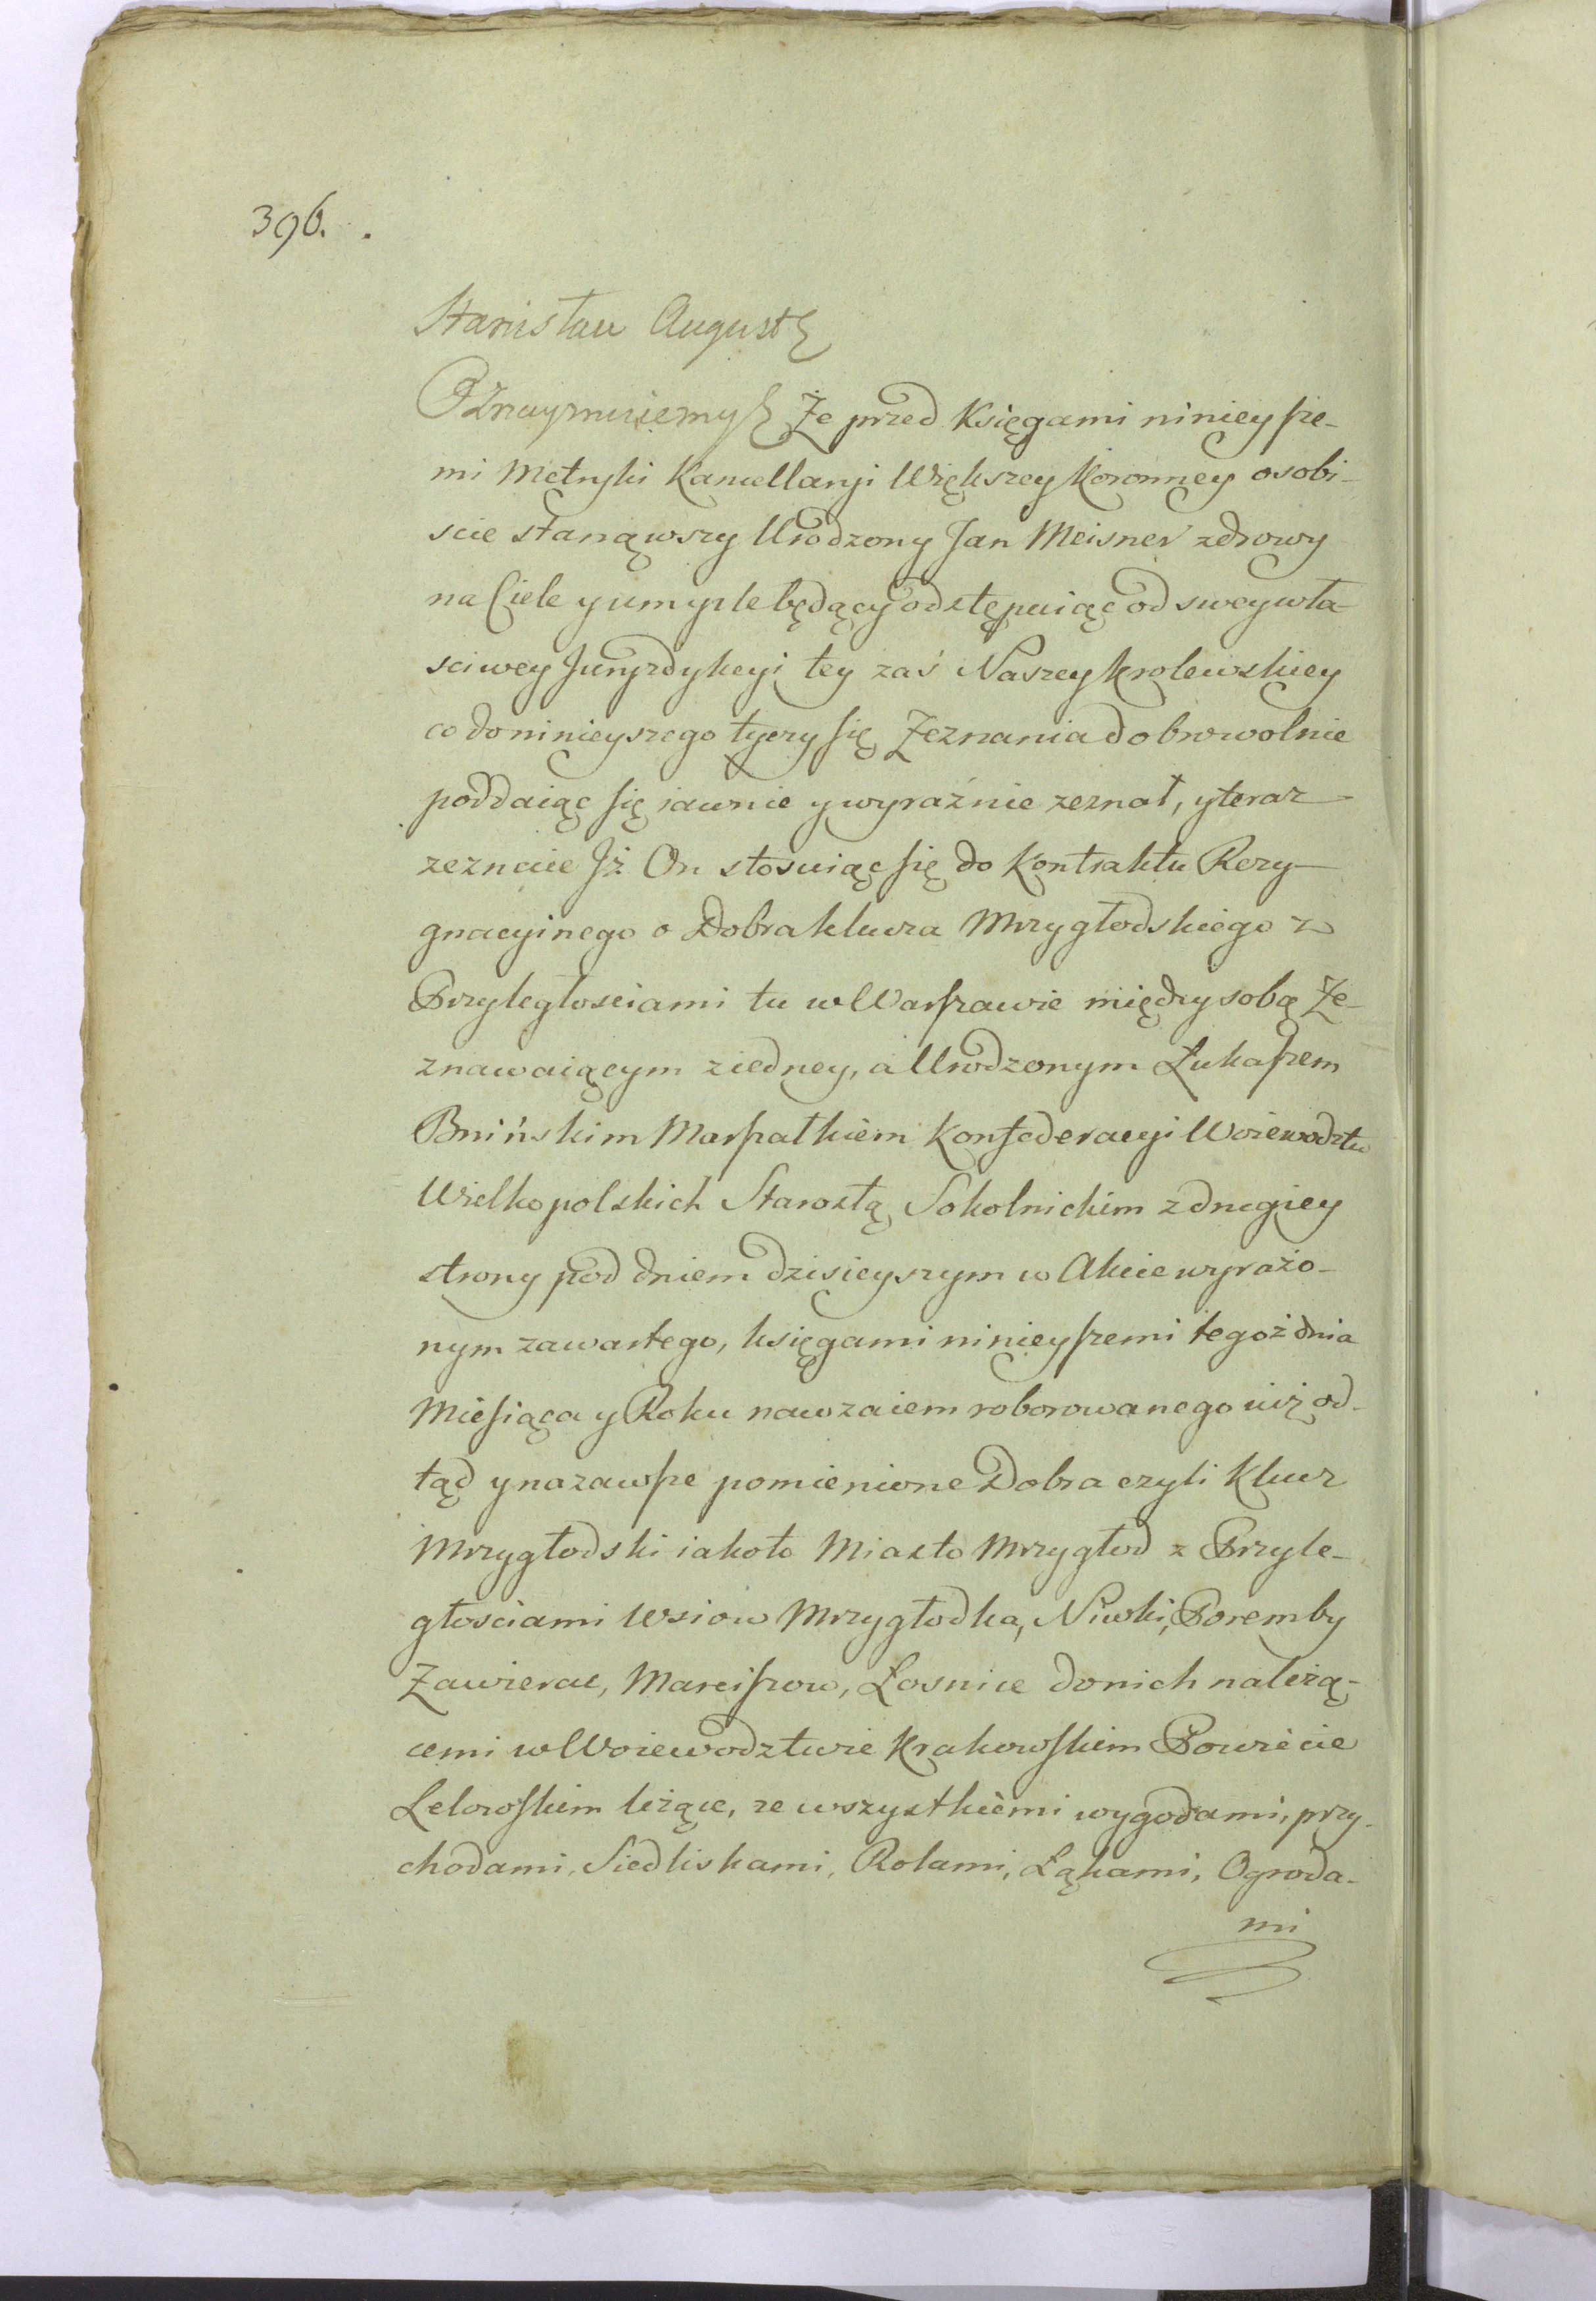 396.
Stanisław August
Oznaymuiemy Że przed Księgami ninieysze-
mi Metryki Kancellaryi Większey Koronney osobi-
scie stanąwszy Urodzony Jan Meisner zdrowy
na Ciele y umysle będący odstępuiąc od swey wła-
sciwey Juryzdykcyi tey zaś Naszey krolewskiey
co do ninieyszego tyczy się Zeznania dobrowolnie
poddaiąc się iawnie y wyraźnie zeznał, y teraz
zeznaie Jż On stosuiąc się do Kontraktu Rezy-
gnacyinego o Dobra klucza Mrzygłodskiego z
Przyległosciami tu w Warszawie między sobą Ze-
znawaiącym z iedney, a Urodzonym Łukaszem
Bnińskim Marszałkiem Konfederacyi Woiewodztw
Wielkopolskich Starostą Sokolnickim z drugiey
strony pod dniem dzisieyszym w Akcie wyrażo-
nym zawartego, księgami ninieyszemi tegoż dnia
Miesiąca y Roku nawzaiem roborowanego iuż od-
tąd y nazawsze pomienione Dobra czyli Klucz
Mrzygłodski iakoto Miasto Mrzygłod z Przyle-
głosciami Wsiow Mrzygłodka, Niwki, Poremby
Zawierac, Marciszow, Łosnice do nich należą-
cemi w Woiewodztwie Krakowskim Powiecie
Lelowskim leżące, ze wszystkiemi wygodami, przy-
chodami, Siedliskami, Rolami, Łąkami, Ogroda-
mi